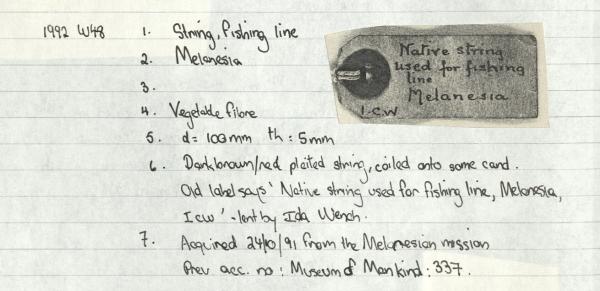 1992 W48 1. String, fishing line
2. Melanesia
3.
4. Vegetable fibre
5. d= 100mm th: 5mm
6. Dark brown/red plaited string, coiled onto some card.
Old label says 'Native string used for fishing line, Melanesia,
I c w' - lent by Ida Wench.
7. Acquired 24/0/91 from the Melanesian mission
Prev acc. no: Museum of Mankind: 337.
Native string
used for fishing
line
Melanesia
I.C.W